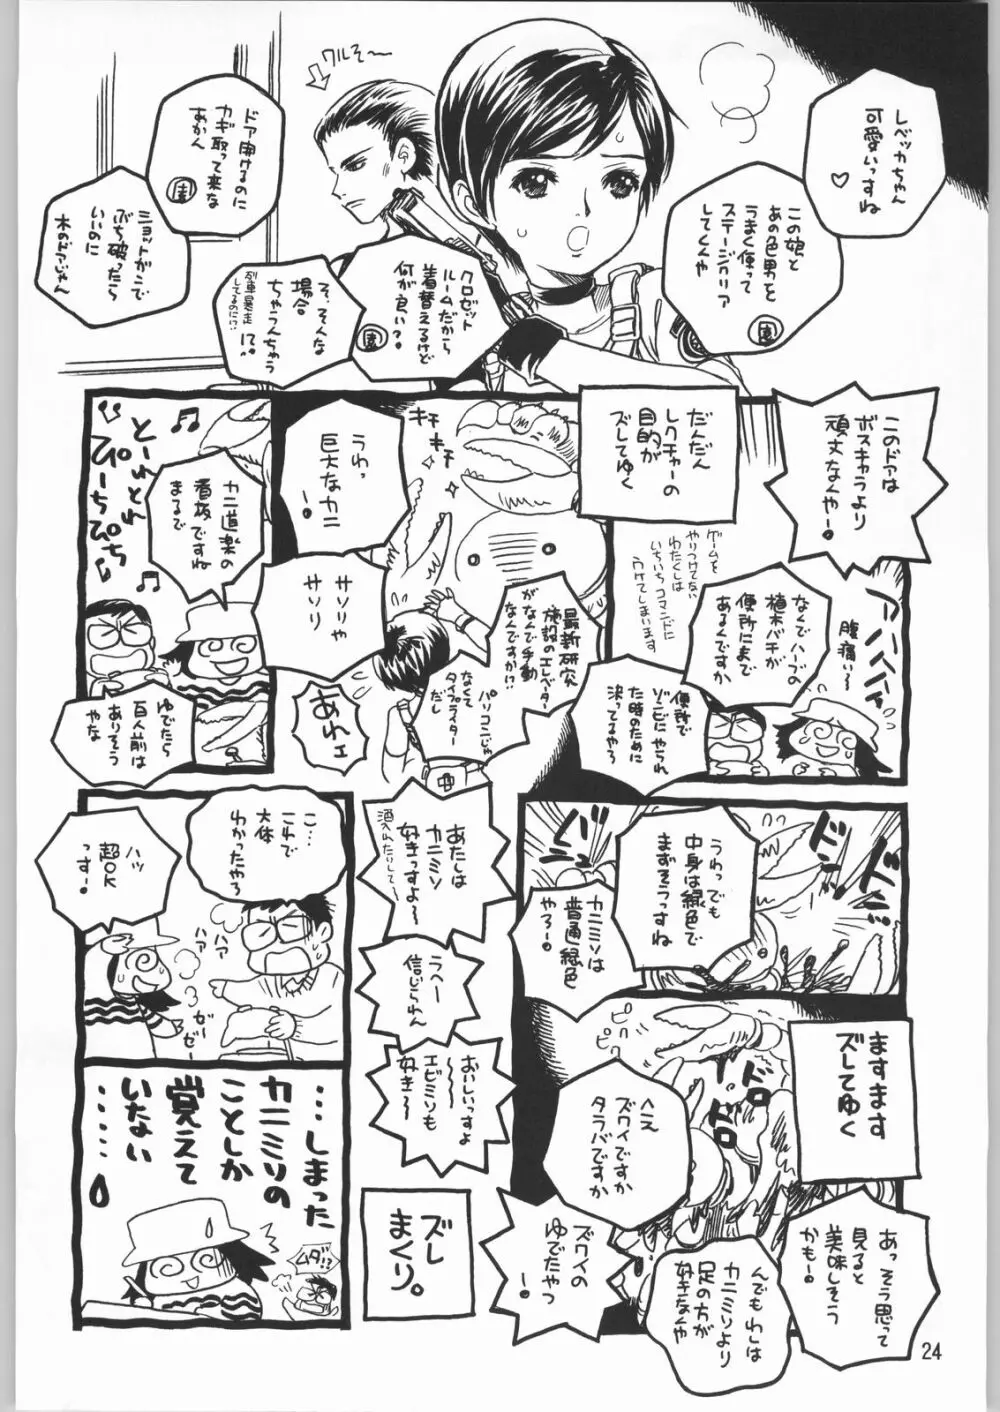 レベッカちゃん
可愛いっすね
♡
この娘と
あの色男を
うまく使って
ステージクリア
してくんや
園
クルぞ〜
クロゼット
ルームだから
着替えるけど
何が良い?
園
そ、そんな
場合
ちゃうんちゃう
!?
列車暴走
してるのに!?
ドア開けるのに
カギ取って来な
あかん
園
ショットガンで
ぶち破ったら
いいのに
木のドアじゃん
このドアは
ボスキャラより
頑丈なんやー!
なんでハーブの
植木バチが
便所にまで
あるんですか
腹痛い〜
便所で
ゾンビにやられ
た時のために
決ってるやろ
だんだん
レクチャーの
目的が
ズレてゆく
ゲームを
やりつけてない
わたくしは
いちいちコマンドに
うけてしまいます
最新研究
施設のエレベーター
がなんで手動
なんですか!?
パソコンじゃ
なくて
タイプライター
だし
キチ
キチ
キチ
うわっ
巨大なカニ
ー!
サソリや
サソリ
あれェ
カニ道楽の
看板ですね
まるで
とーれとれ
ぴーちぴち
ゆでたら
百人前は
ありそう
やな
うわっでも
中身は緑色で
まずそうっすね
ドン
ドン
カニミソは
普通緑色
やろー!
あたしは
カニミソ
好きっすよ〜
酒入れたりして〜
うへー
信じられん
おいしいっすよ
〜〜
エビミソも
好き〜
ますます
ズレてゆく
ピク
ピク
へえ
ズワイですか
タラバですか
ズワイの
ゆでたやつ
ー!
あっそう思って
見ると
美味しそう
かもー!
んでもわしは
カニミソより
足の方が
好きなんや
ズレ
まくり。
こ…
これで
大体
わかったやろ
ハッ
超OK
っすー!
ハァ
ハァ
ゼー
ゼー
…しまった
カニミソの
ことしか
覚えて
いない
……
ムダ!?
24